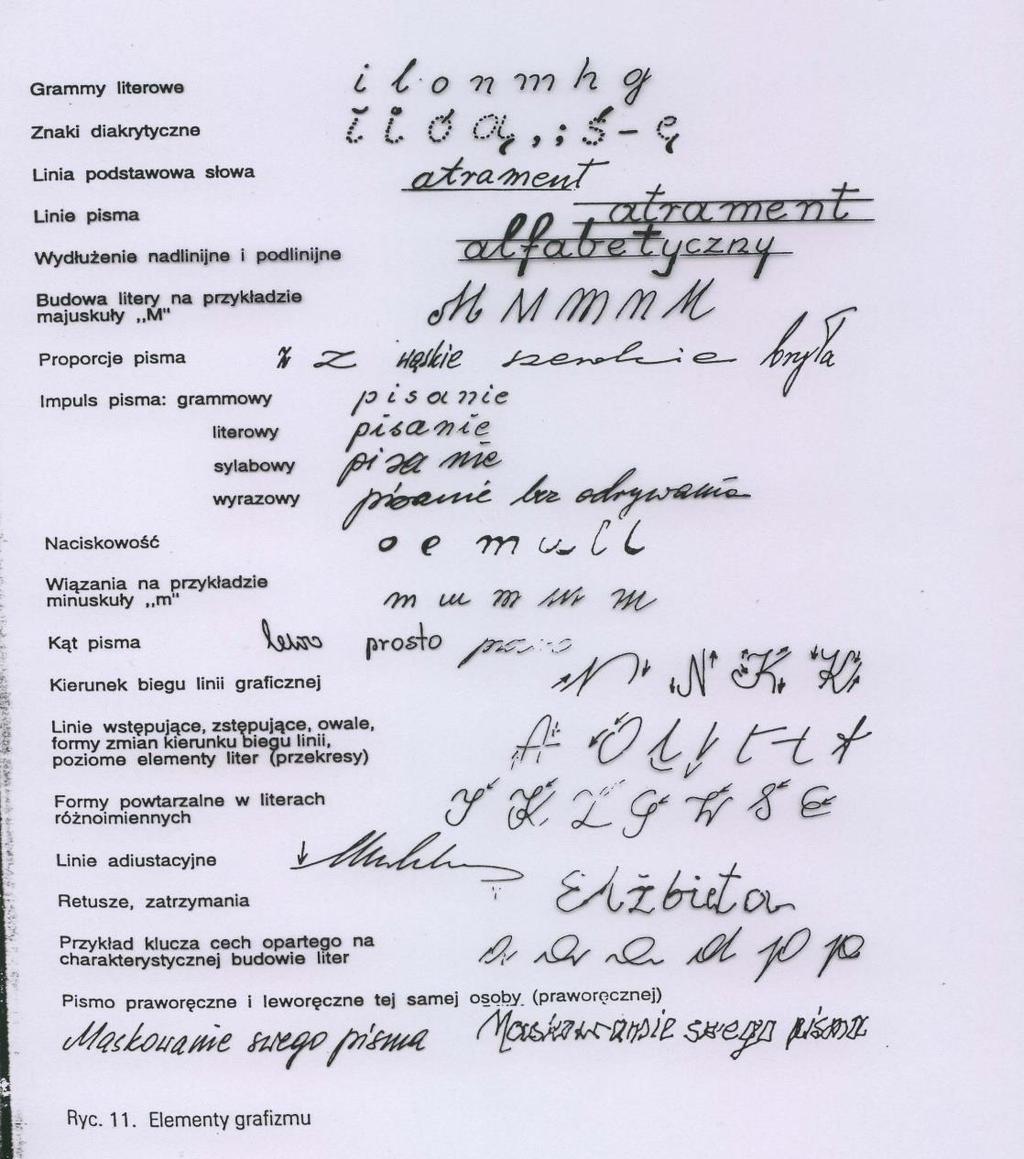 Grammy literowe i l o n m h g
Znaki diakrytyczne ą , ; ś – ę
Linia podstawowa słowa atrament
Linie pisma atrament
Wydłużenie nadlinijne i podlinijne alfabetyczny
Budowa litery na przykładzie
majuskuły ,,M" M M M M M
Proporcje pisma z z wąskie szerokie bryła
Impuls pisma: grammowy pisanie
literowy pisanie
sylabowy pisanie
wyrazowy pisanie bez odrywania
Naciskowość o e m u l l
Wiązania na przykładzie
minuskuły ,,m" m m m m m
Kąt pisma lewo prosto prawo
Kierunek biegu linii graficznej N N K K
Linie wstępujące, zstępujące, owale,
formy zmian kierunku biegu linii,
poziome elementy liter (przekresy) A O l y t t t
Formy powtarzalne w literach
różnoimiennych J K L G W S E
Linie adiustacyjne
Retusze, zatrzymania Elżbieta
Przykład klucza cech opartego na
charakterystycznej budowie liter a a a d p p
Pismo praworęczne i leworęczne tej samej osoby (praworęcznej)
Maskowanie swego pisma Maskowanie swego pisma
Ryc. 11. Elementy grafizmu